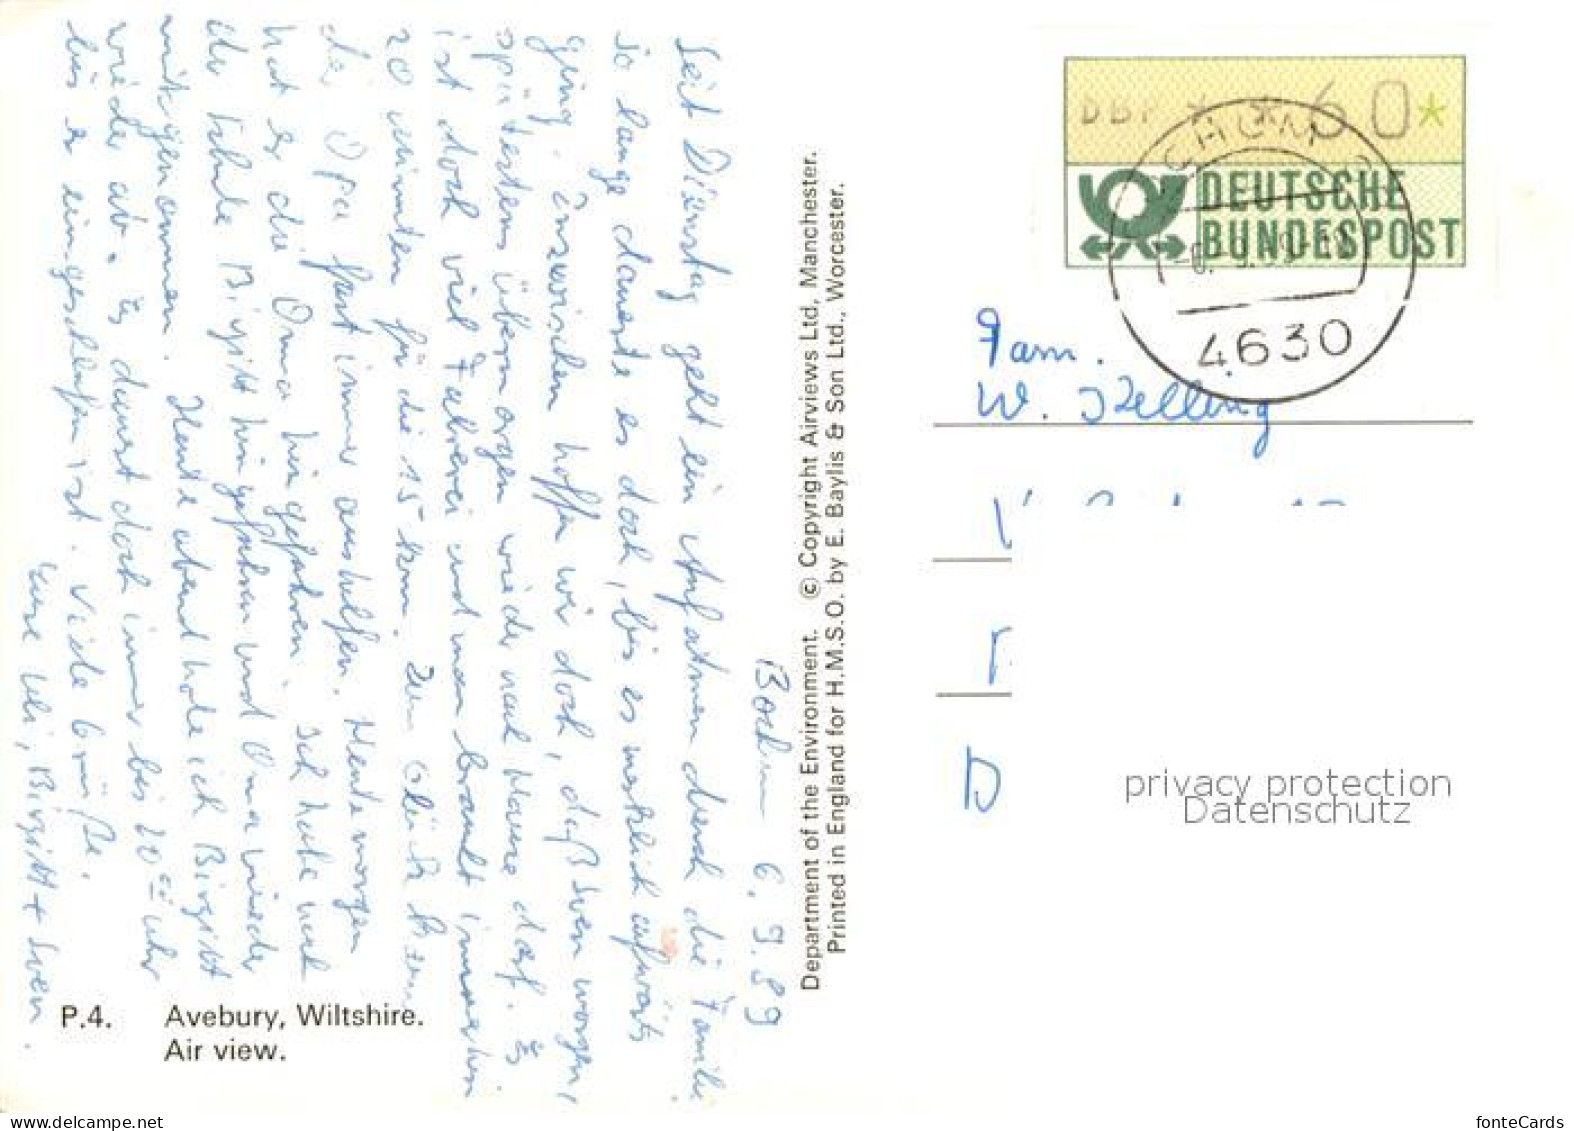 Bochum 6.9.89
Seit Dienstag geht ein Aufatmen durch die Familie.
So lange dauerte es doch, bis es merklich aufwärts
ging. Inzwischen hoffen wir doch, daß Sven morgen,
spätestens übermorgen wieder nach Hause darf. Es
ist doch viel Fahrerei und man braucht immerhin
20 Minuten für die 15 km. Zum Glück kann
der Opa fast immer aushelfen. Heute morgen
hat er die Oma hingefahren. Ich habe nach
der Schule Birgitt hingefahren und Oma wieder
mitgenommen. Heute abend hole ich Birgitt
wieder ab. Es dauert doch immer bis 20 Uhr
bis er eingeschlafen ist. Viele Grüße.
Eure Uli, Birgitt + Sven.
P.4. Avebury, Wiltshire.
Air view.
Department of the Environment. © Copyright Airviews Ltd, Manchester.
Printed in England for H.M.S.O. by E. Baylis & Son Ltd., Worcester.
DBP * * 60 *
DEUTSCHE
BUNDESPOST
4630
Fam.
W.
D
privacy protection
Datenschutz
www.delcampe.net
fonteCards